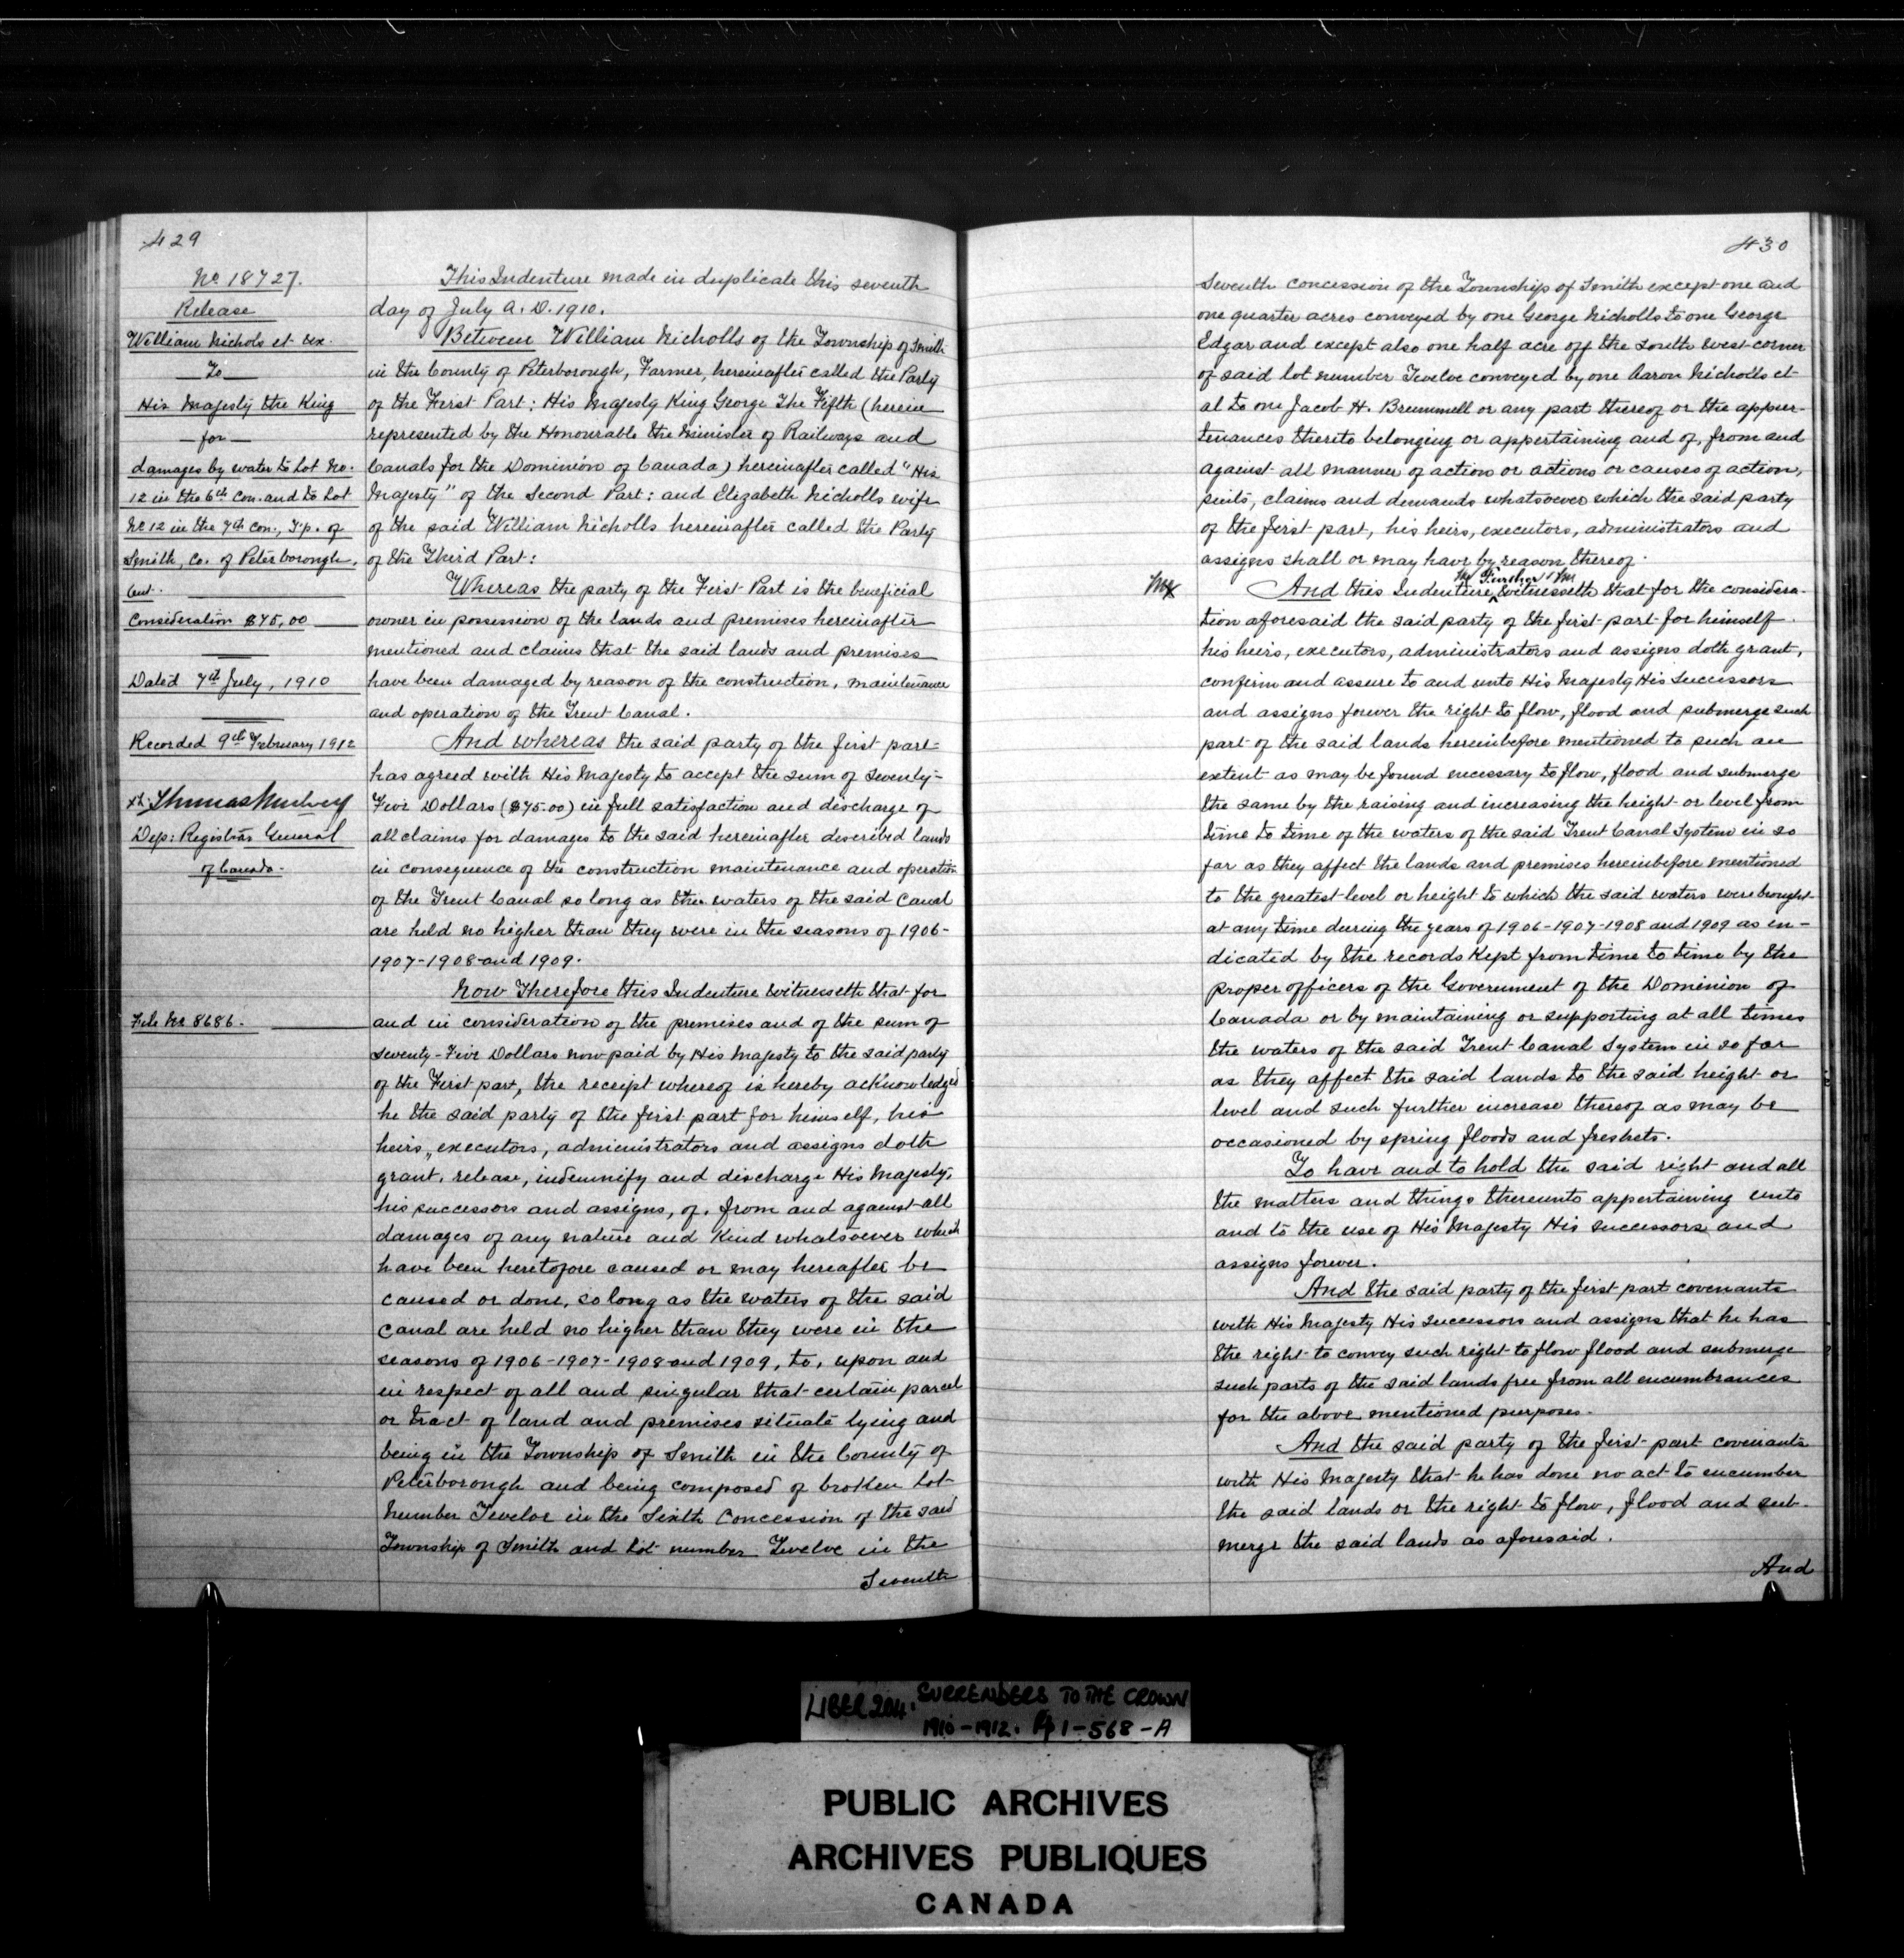 429
No 18727.
Release
William Nichols et ux.
To
His Majesty the King
for
damages by water to Lot No.
12 in the 6th Con. and to Lot
No 12 in the 7th Con., Tp. of
Smith, Co. of Peterborough,
Ont.
Consideration $75.00
Dated 7th July, 1910
Recorded 9th February 1912
Thomas Mulvey
Dep: Registrar General
of Canada.
File No 8686.
This Indenture made in duplicate this seventh
day of July A.D. 1910.
Between William Nicholls of the Township of Smith
in the County of Peterborough, Farmer, hereinafter called the Party
of the First Part; His Majesty King George The Fifth (herein
represented by the Honourable the Minister of Railways and
Canals for the Dominion of Canada) hereinafter called "His
Majesty" of the Second Part: and Elizabeth Nicholls wife
of the said William Nicholls hereinafter called the Party
of the Third Part:
Whereas the party of the First Part is the beneficial
owner in possession of the lands and premises hereinafter
mentioned and claims that the said lands and premises
have been damaged by reason of the construction, maintenance
and operation of the Trent Canal.
And whereas the said party of the first part
has agreed with His Majesty to accept the sum of Seventy-
Five Dollars ($75.00) in full satisfaction and discharge of
all claims for damages to the said hereinafter described lands
in consequence of the construction maintenance and operation
of the Trent Canal so long as the waters of the said Canal
are held no higher than they were in the seasons of 1906-
1907-1908 and 1909.
Now Therefore this Indenture witnesseth that for
and in consideration of the premises and of the sum of
Seventy-Five Dollars now paid by His Majesty to the said party
of the First part, the receipt whereof is hereby acknowledged
he the said party of the first part for himself, his
heirs, executors, administrators and assigns doth
grant, release, indemnify and discharge His Majesty,
his successors and assigns, of, from and against all
damages of any nature and kind whatsoever which
have been heretofore caused or may hereafter be
caused or done, so long as the waters of the said
Canal are held no higher than they were in the
seasons of 1906-1907-1908 and 1909, to, upon and
in respect of all and singular that certain parcel
or tract of land and premises situate lying and
being in the Township of Smith in the County of
Peterborough and being composed of broken Lot
number Twelve in the Sixth Concession of the said
Township of Smith and Lot number Twelve in the
Seventh
430
Seventh concession of the Township of Smith except one and
one quarter acres conveyed by one George Nicholls to one George
Edgar and except also one half acre off the South West corner
of said lot number Twelve conveyed by one Aaron Nicholls et
al to one Jacob H. Brummell or any part thereof or the appur-
tenances thereto belonging or appertaining and of, from and
against all manner of action or actions or causes of action,
suits, claims and demands whatsoever which the said party
of the first part, his heirs, executors, administrators and
assigns shall or may have by reason thereof.
Further
And this Indenture witnesseth that for the considera-
tion aforesaid the said party of the first part for himself
his heirs, executors, administrators and assigns doth grant,
confirm and assure to and unto His Majesty His Successors
and assigns forever the right to flow, flood and submerge such
part of the said lands hereinbefore mentioned to such an
extent as may be found necessary to flow, flood and submerge
the same by the raising and increasing the height or level from
time to time of the waters of the said Trent Canal System in so
far as they affect the lands and premises hereinbefore mentioned
to the greatest level or height to which the said waters were brought
at any time during the years of 1906-1907-1908 and 1909 as in-
dicated by the records kept from time to time by the
proper officers of the Government of the Dominion of
Canada or by maintaining or supporting at all times
the waters of the said Trent Canal System in so far
as they affect the said lands to the said height or
level and such further increase thereof as may be
occasioned by spring floods and freshets.
To have and to hold the said right and all
the matters and things thereunto appertaining unto
and to the use of His Majesty His successors and
assigns forever.
And the said party of the first part covenants
with His Majesty His Successors and assigns that he has
the right to convey such right to flow flood and submerge
such parts of the said lands free from all encumbrances
for the above mentioned purposes.
And the said party of the first part covenants
with His Majesty that he has done no act to encumber
the said lands or the right to flow, flood and sub-
merge the said lands as aforesaid.
And
LIBER 204. SURRENDERS TO THE CROWN
1910-1912. Pp 1-568-A
PUBLIC ARCHIVES
ARCHIVES PUBLIQUES
CANADA